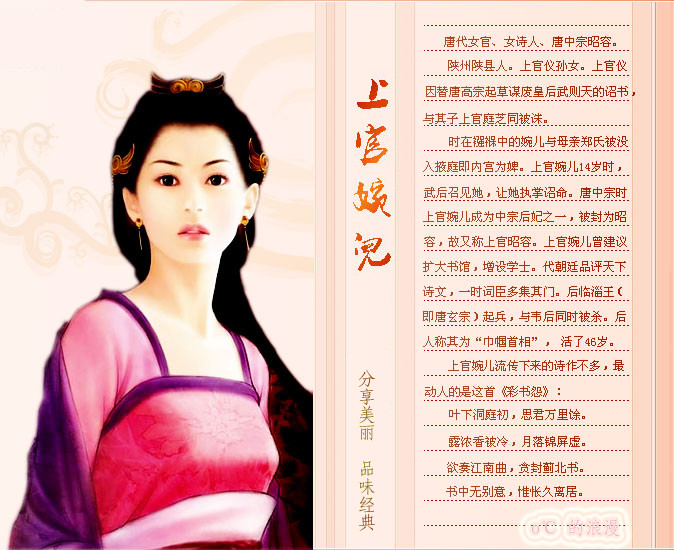 上官婉儿
分享美丽 品味经典
唐代女官、女诗人、唐中宗昭容。
陕州陕县人。上官仪孙女。上官仪
因替唐高宗起草谋废皇后武则天的诏书，
与其子上官庭芝同被诛。
时在襁褓中的婉儿与母亲郑氏被没
入掖庭即内宫为婢。上官婉儿14岁时，
武后召见她，让她执掌诏命。唐中宗时
上官婉儿成为中宗后妃之一，被封为昭
容，故又称上官昭容。上官婉儿曾建议
扩大书馆，增设学士。代朝廷品评天下
诗文，一时词臣多集其门。后临淄王（
即唐玄宗）起兵，与韦后同时被杀。后
人称其为“巾帼首相”， 活了46岁。
上官婉儿流传下来的诗作不多，最
动人的是这首《彩书怨》：
叶下洞庭初，思君万里馀。
露浓香被冷，月落锦屏虚。
欲奏江南曲，贪封蓟北书。
书中无别意，惟怅久离居。
0℃ 的浪漫